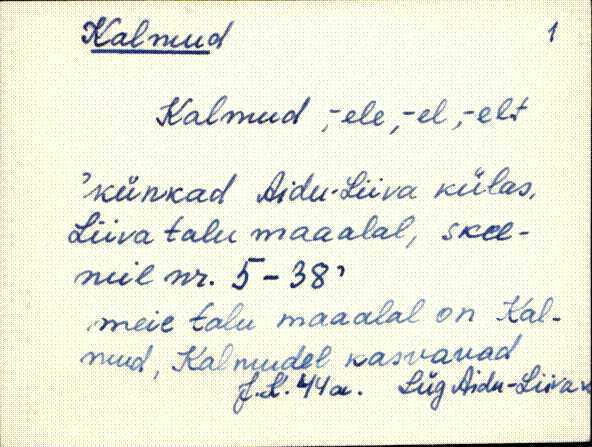 Kalmud 1
Kalmud, -ele, -el, -elt
'künkad Aidu-Liiva külas,
Liiva talu maaalal, skee-
meil nr. 5-38'
meie talu maaalal on Kal-
mud, Kalmudel kasvavad
J.K. 44 a. Lüg Aidu-Liiva